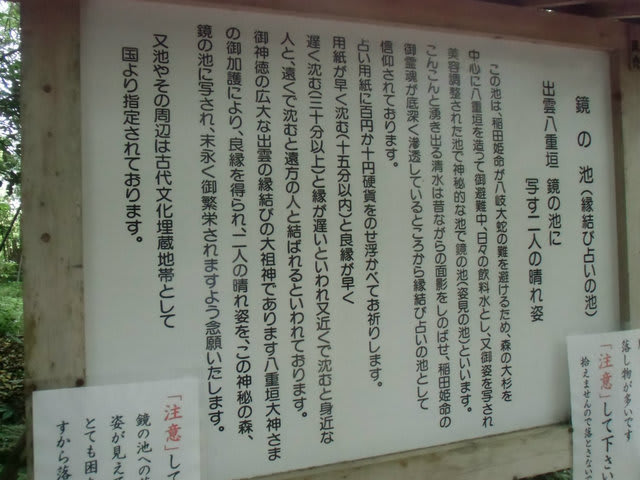 鏡の池(縁結び占いの池)
出雲八重垣 鏡の池に
写す二人の晴れ姿
この池は、稲田姫命が八岐大蛇の難を避けるため、森の大杉を
中心に八重垣を造って御避難中、日々の飲料水とし、又御姿を写され
美容調整された池で神秘的な池で鏡の池(姿見の池)といいます。
こんこんと湧き出る清水は昔ながらの面影をしのばせ、稲田姫命の
御霊魂が底深く滲透しているところから縁結び占いの池として
信仰されております。
占い用紙に百円か十円硬貨をのせ浮かべてお祈りします。
用紙が早く沈む(十五分以内)と良縁が早く
遅く沈む(三十分以上)と縁が遅いといわれ又近くで沈むと身近な
人と、遠くで沈むと遠方の人と結ばれるといわれております。
御神徳の広大な出雲の縁結びの大祖神であります八重垣大神さま
の御加護により、良縁を得られ、二人の晴れ姿を、この神秘の森、
鏡の池に写され、末永く御繁栄されますよう念願いたします。
又池やその周辺は古代文化埋蔵地帯として
国より指定されております。
落し物が多いです
「注意」して下さい
拾えませんので落とさない
「注意」して
鏡の池への
姿が見えて
とても困
すから落